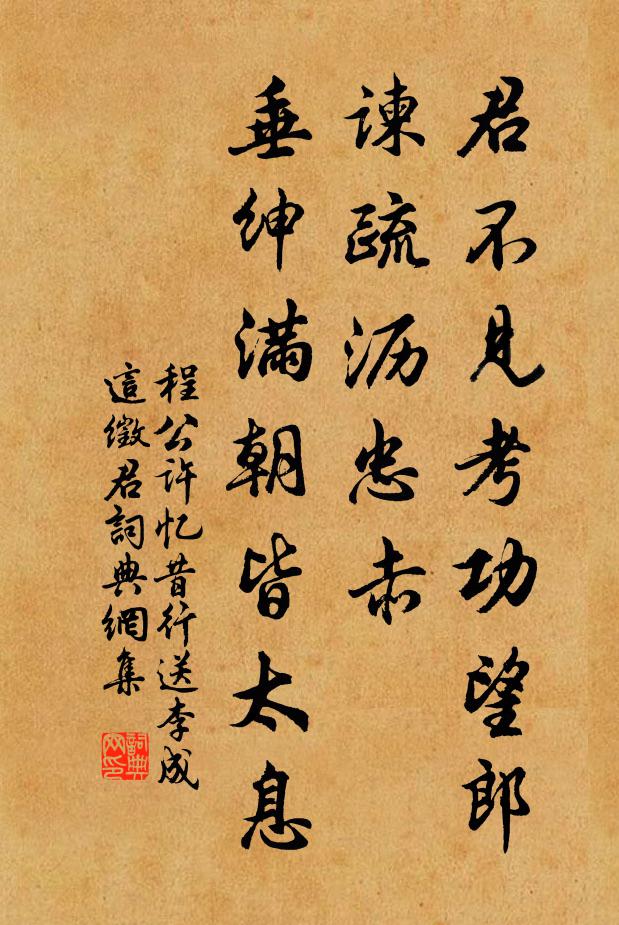 君不见考功望郎
谏疏沥忠赤
垂绅满朝皆太息
程公许忆昔行送李成
這徵君詞典網集
詞典
网印